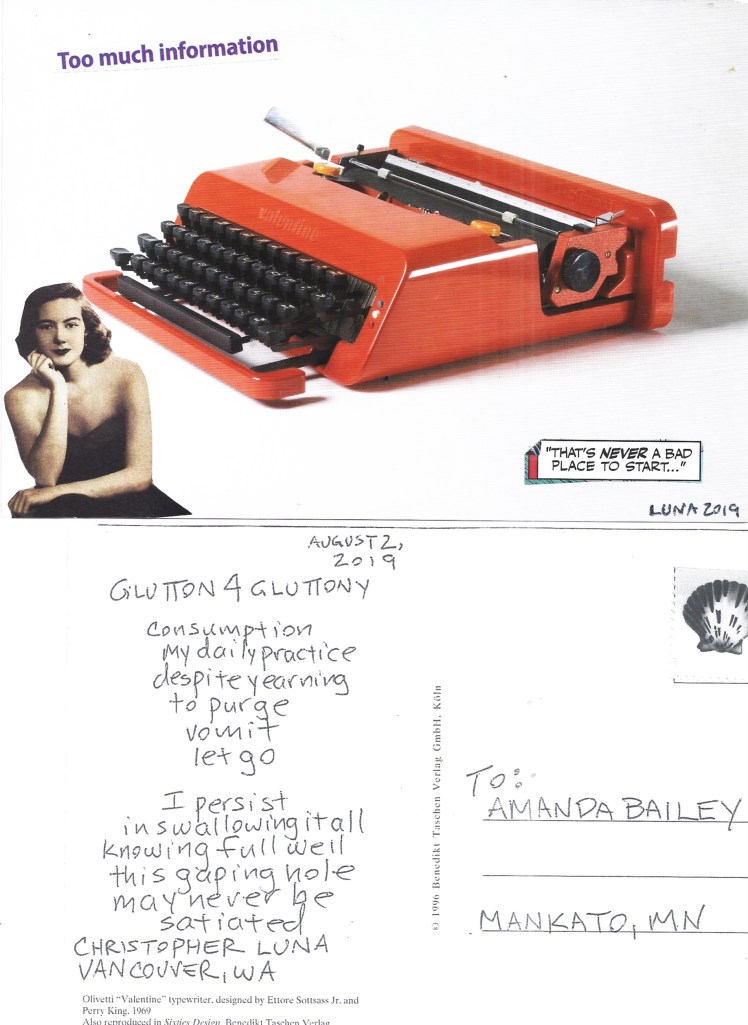 Too much information
valentine
"THAT'S NEVER A BAD
PLACE TO START..."
LUNA 2019
AUGUST 2,
2019
GLUTTON 4 GLUTTONY
consumption
my daily practice
despite yearning
to purge
vomit
let go
I persist
in swallowing it all
knowing full well
this gaping hole
may never be
satiated
CHRISTOPHER LUNA
VANCOUVER, WA
Olivetti "Valentine" typewriter, designed by Ettore Sottsass Jr. and
Perry King, 1969
Also reproduced in Sixties Design, Benedikt Taschen Verlag
© 1996 Benedikt Taschen Verlag GmbH, Köln
TO:
AMANDA BAILEY
MANKATO, MN